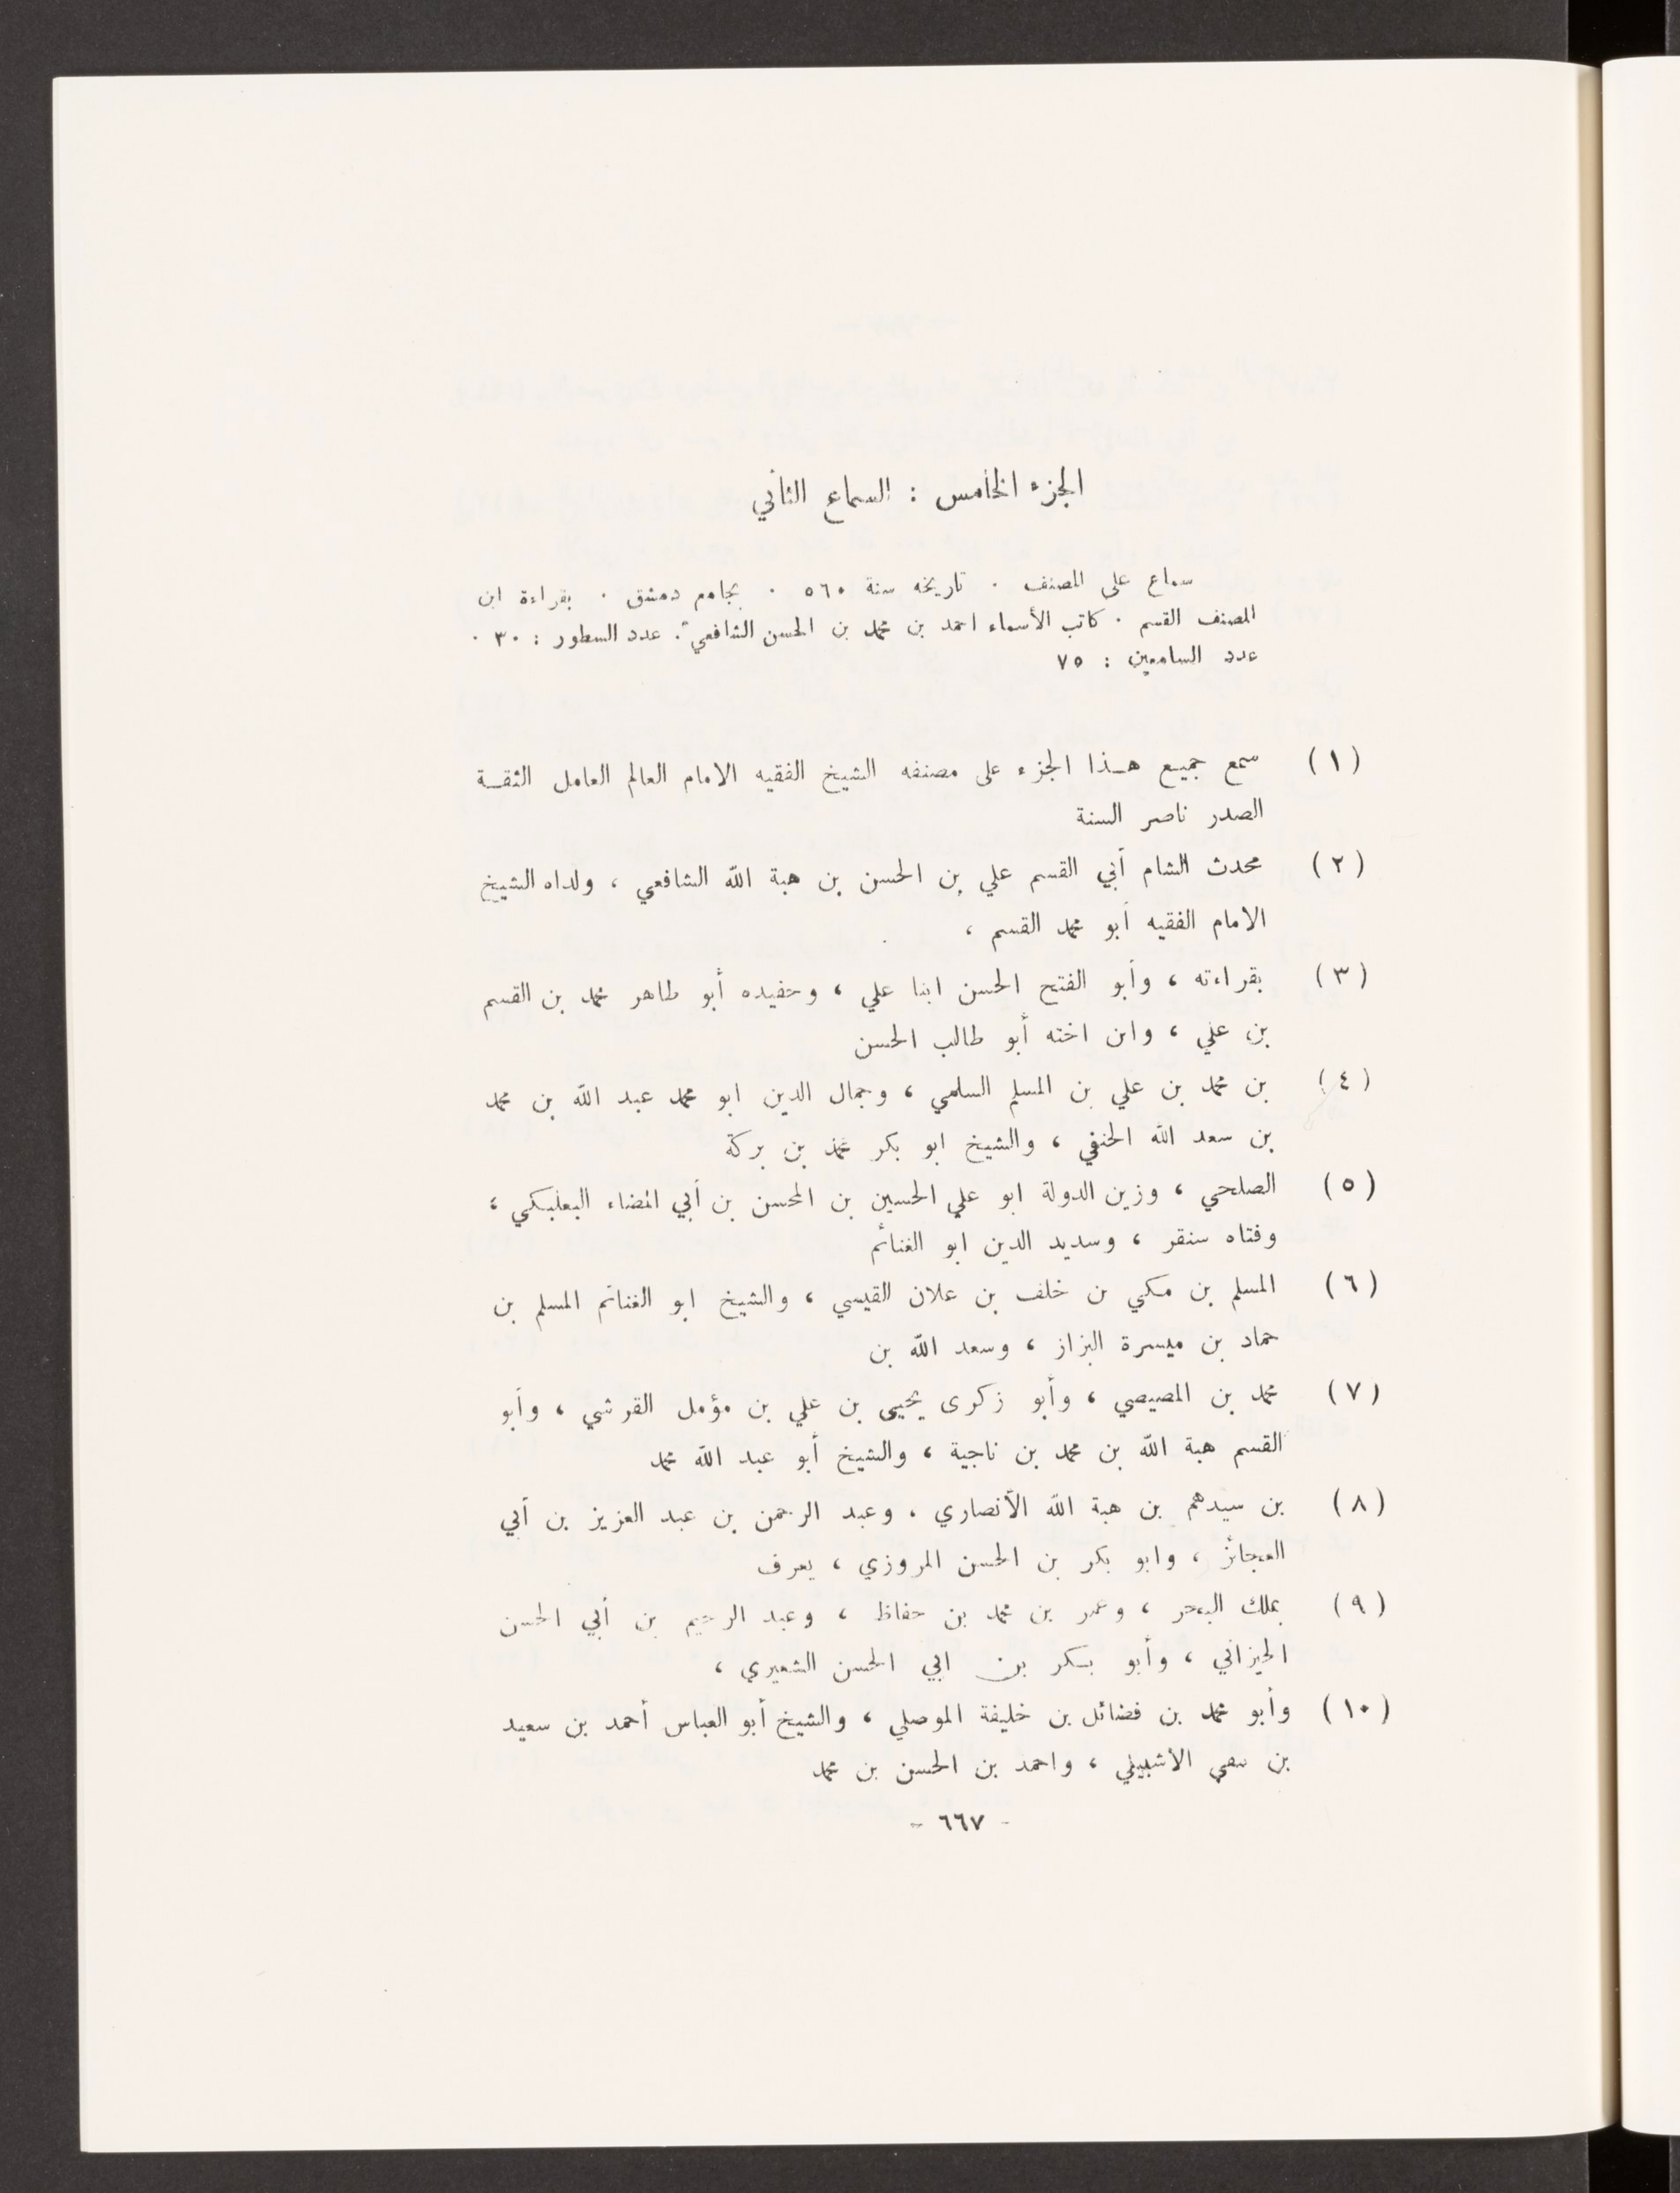 الجزء الخامس : السماع الثاني
سماع على المصنف . تاريخه سنة ٥٦٠ . بجامع دمشق . بقراءة ابن
المصنف القسم . كاتب الأسماء احمد بن محمد بن الحسن الشافعي . عدد السطور : ٣٠ .
عدد السامعين : ٧٥
(١) سمع جميع هذا الجزء على مصنفه الشيخ الفقيه الامام العالم العامل الثقة
الصدر ناصر السنة
(٢) محدث الشام أبي القسم علي بن الحسن بن هبة الله الشافعي ، ولداه الشيخ
الامام الفقيه أبو محمد القسم ،
(٣) بقراءته ، وأبو الفتح الحسن ابنا علي ، وحفيده أبو طاهر محمد بن القسم
بن علي ، وابن اخته أبو طالب الحسن
(٤) بن محمد بن علي بن المسلم السلمي ، وجمال الدين ابو محمد عبد الله بن محمد
بن سعد الله الحنفي ، والشيخ ابو بكر محمد بن بركة
(٥) الصلحي ، وزين الدولة ابو علي الحسين بن المحسن بن أبي المضاء البعلبكي ،
وفتاه سنقر ، وسديد الدين ابو الغنائم
(٦) المسلم بن مكي بن خلف بن علان القيسي ، والشيخ ابو الغنائم المسلم بن
حماد بن ميسرة البزاز ، وسعد الله بن
(٧) محمد بن المصيصي ، وأبو زكرى يحيى بن علي بن مؤمل القرشي ، وأبو
القسم هبة الله بن محمد بن ناجية ، والشيخ أبو عبد الله محمد
(٨) بن سيدهم بن هبة الله الأنصاري ، وعبد الرحمن بن عبد العزيز بن أبي
العجائز ، وابو بكر بن الحسن المروزي ، يعرف
(٩) بملك البحر ، وعمر بن محمد بن حفاظ ، وعبد الرحيم بن أبي الحسن
الخيزاني ، وأبو بكر بن ابي الحسن الشعيري ،
(١٠) وأبو محمد بن فضائل بن خليفة الموصلي ، والشيخ أبو العباس أحمد بن سعيد
بن الأشبيلي ، واحمد بن الحسن بن محمد
- ٦٦٧ -